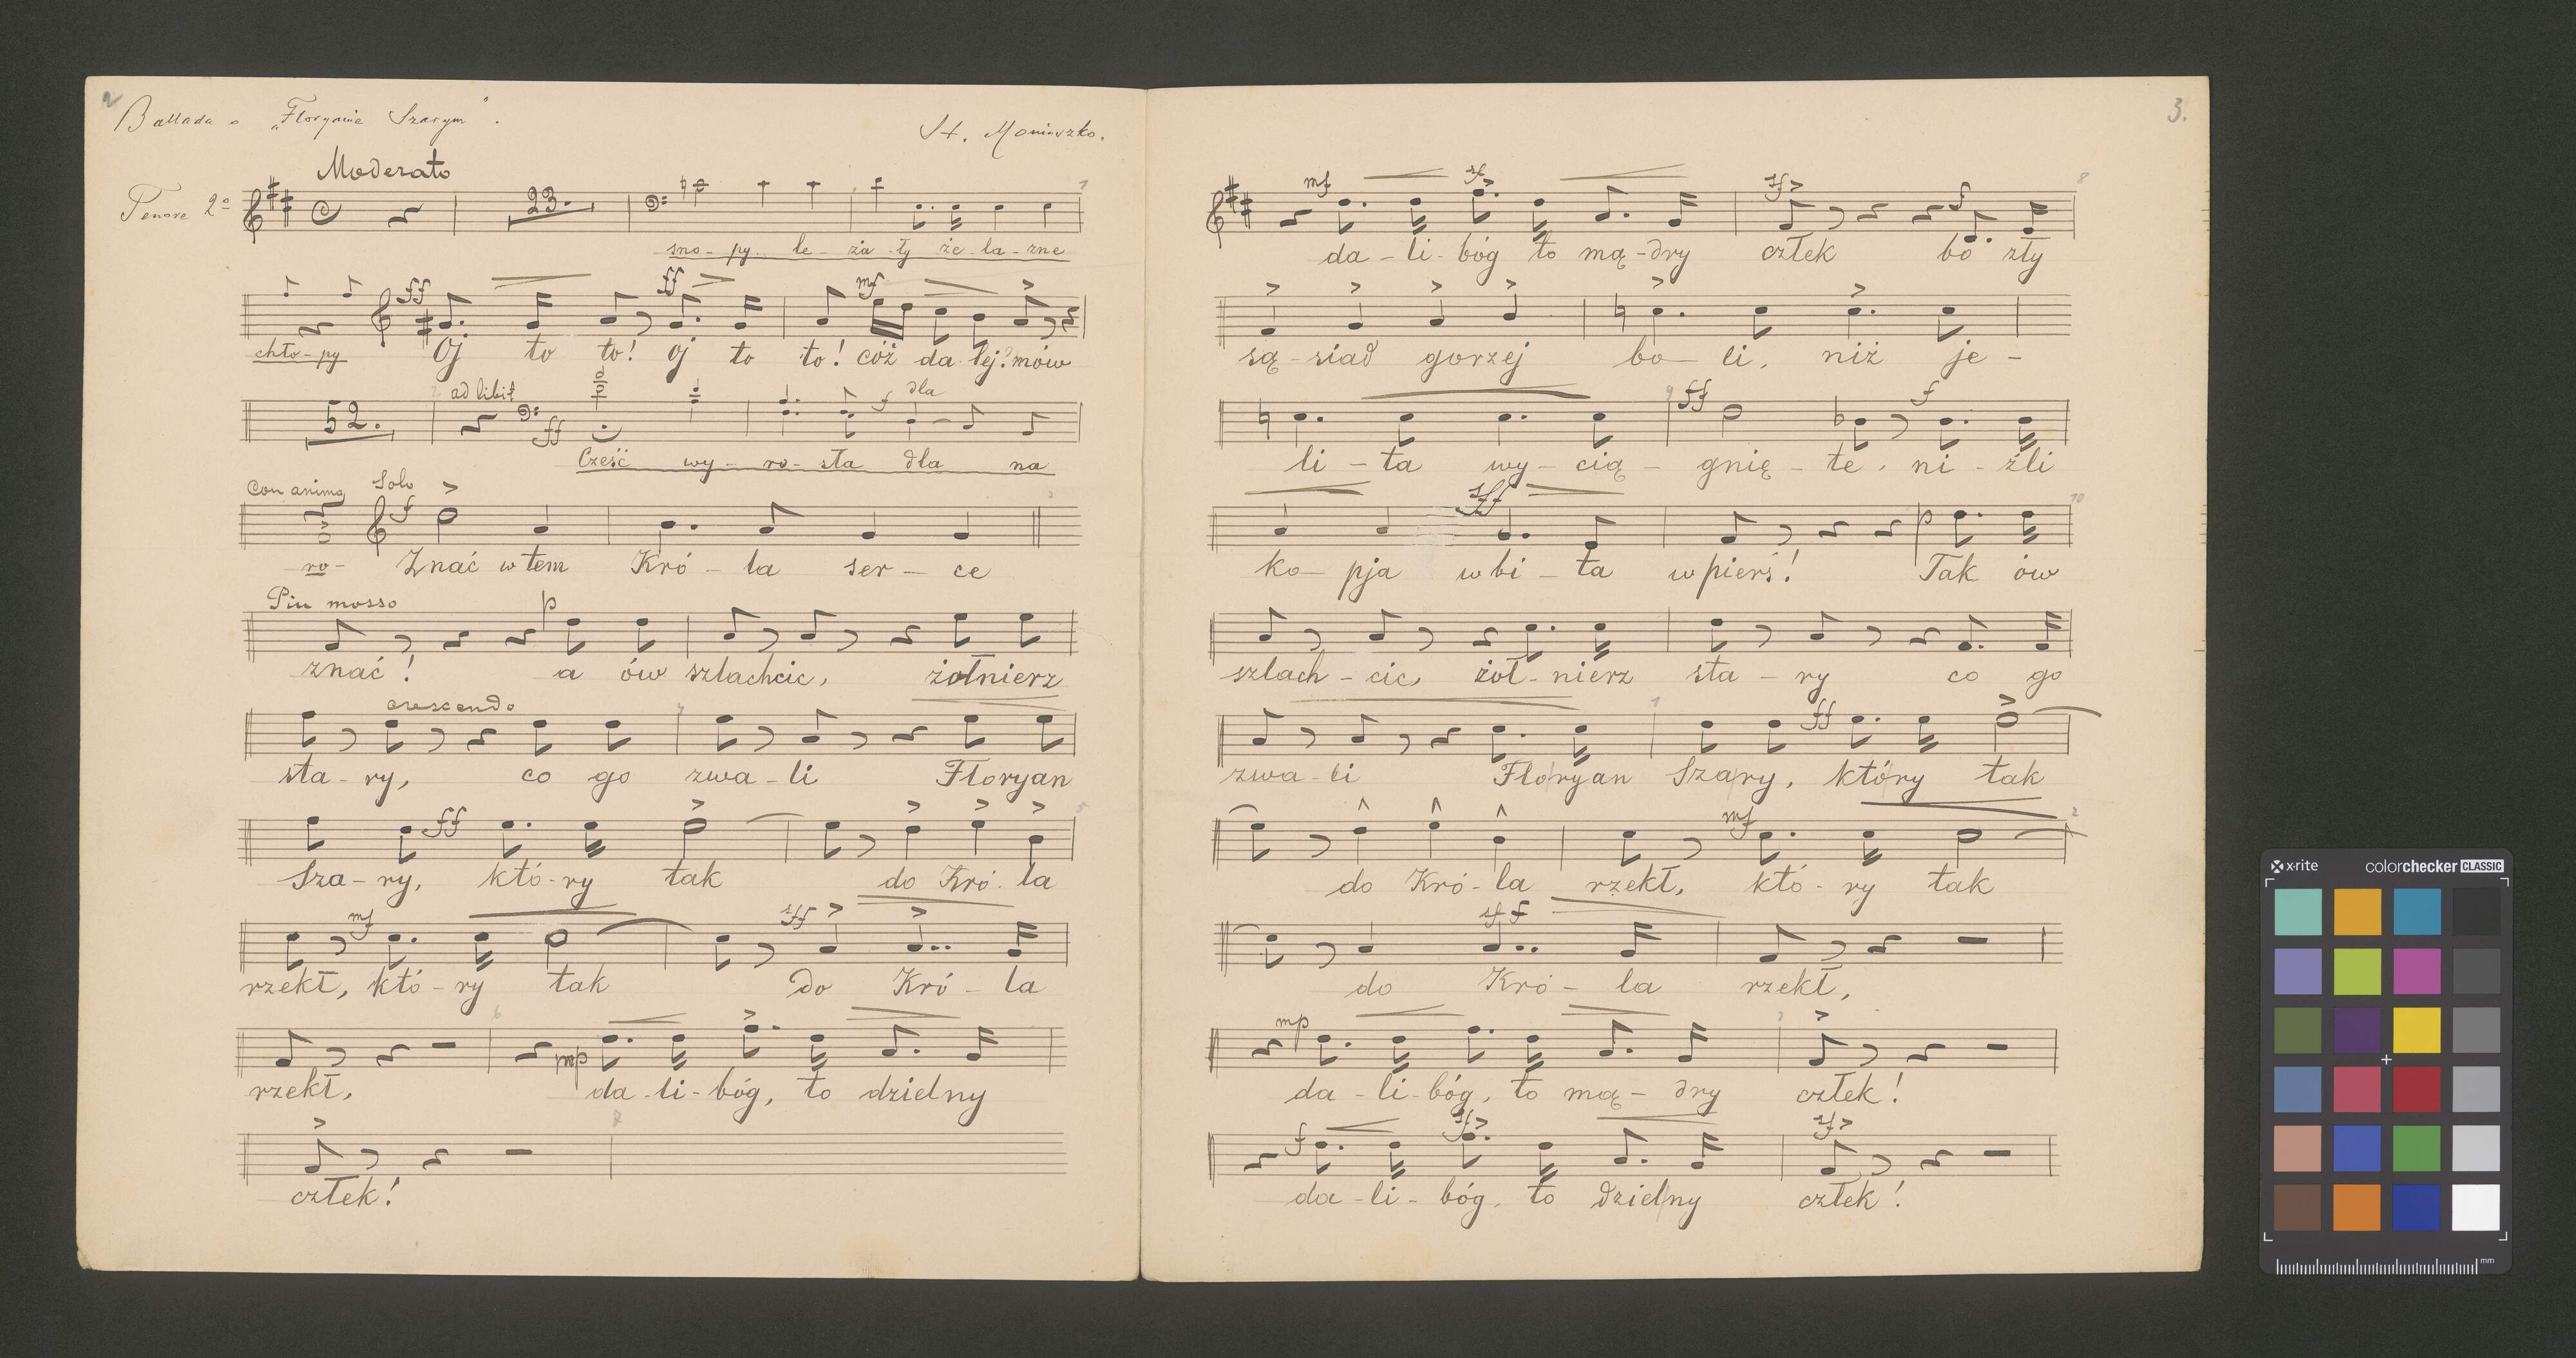 2
Ballada o „Floryanie Szarym".
St. Moniuszko.
Moderato
Tenore 2º
23.
1
sno - py le - ża - ły że - la - zne
ff ff mf
chło - py Oj to to! oj to to! cóż da lej? mów
2 ad libit dla
52. ff f
Cześć wy - ro - sła dla na
Con anima Solo f 3
ro - Znać w tem Kró - la ser - ce
Piu mosso p
znać! a ów szlachcic, żołnierz
crescendo 4
sta - ry, co go zwa - li Floryan
ff 5
Sza - ry, któ - ry tak do Kró - la
mf sff
rzekł, któ - ry tak do Kró - la
6 mp
rzekł, da - li - bóg, to dzielny
7
człek!
3.
mf sf sf f 8
da - li - bóg to mą - dry człek bo zły
są - siad gorzej bo - li, niż je -
9 ff f
li - ta wy - cią - gnię - te, ni - źli
sff p 10
ko - pja wbi - ta w pierś! Tak ów
szlach - cic, żoł - nierz sta - ry co go
1 ff
zwa - li Floryan Szary, który tak
mf 2
do Kró - la rzekł, któ - ry tak
sff
do Kró - la rzekł,
mp 3
da - li - bóg, to mą - dry człek!
f sf sf
da - li - bóg, to dzielny człek!
x-rite colorchecker CLASSIC
mm